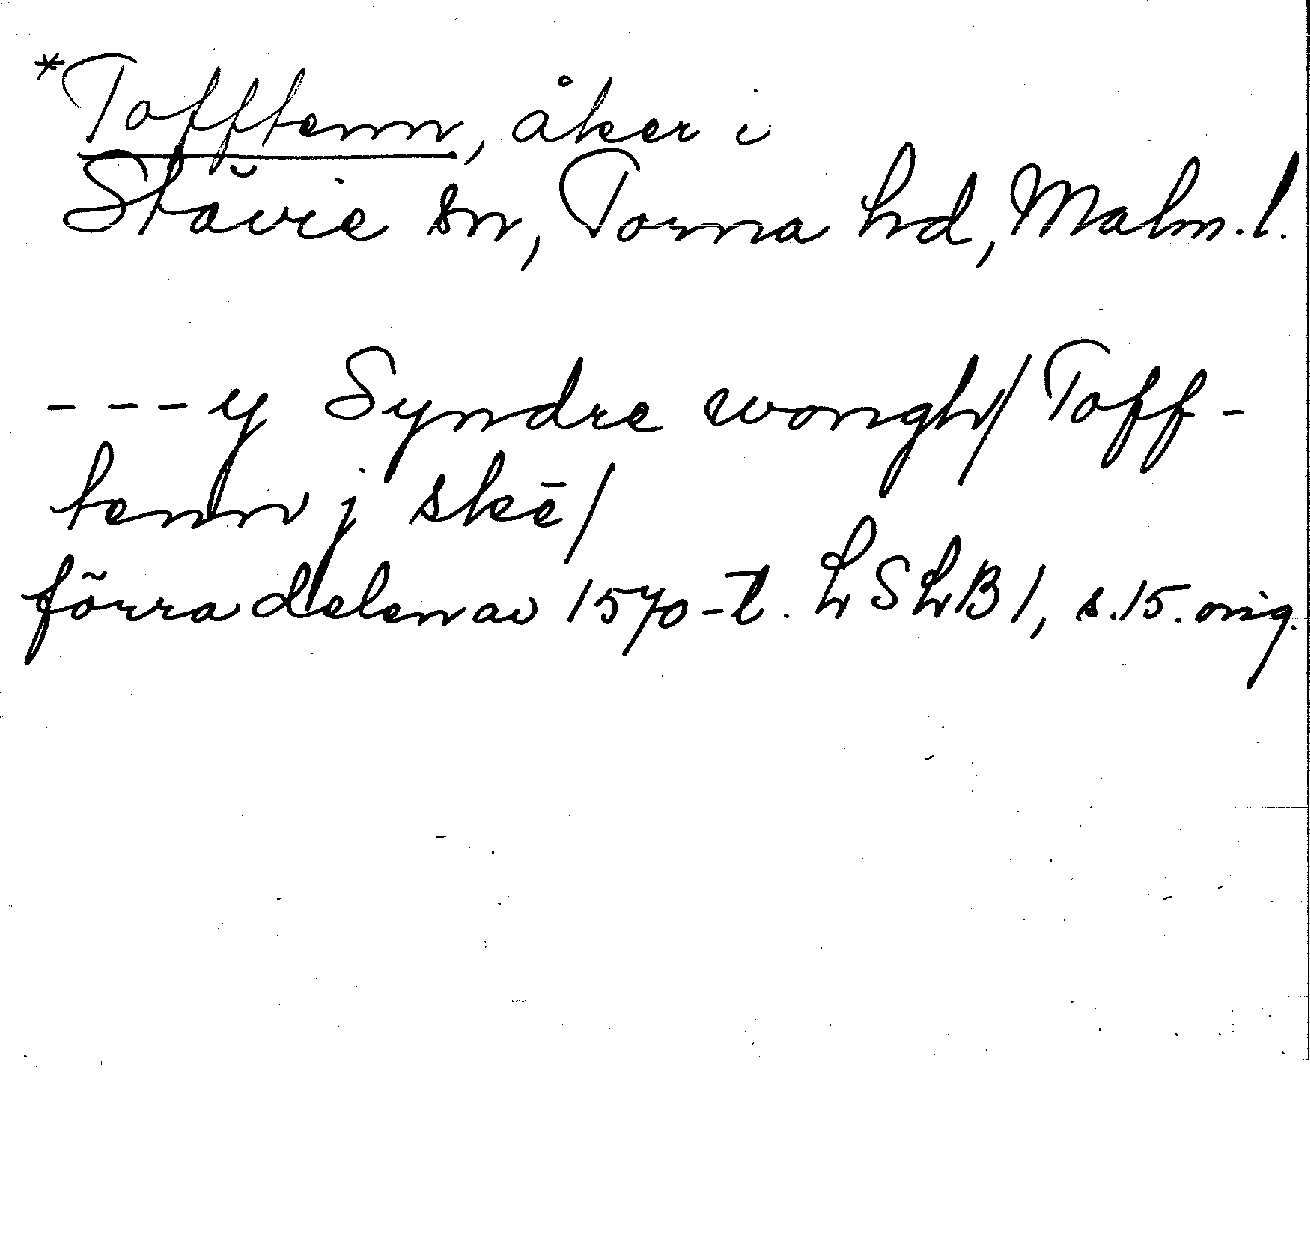 *Tofftenn, åker i
Stävie sn, Torna hd, Malm. l.
---y Syndre wongh/ Toff-
tenn j skē/
förra delen av 1570-t. LSLB 1, s. 15. orig.